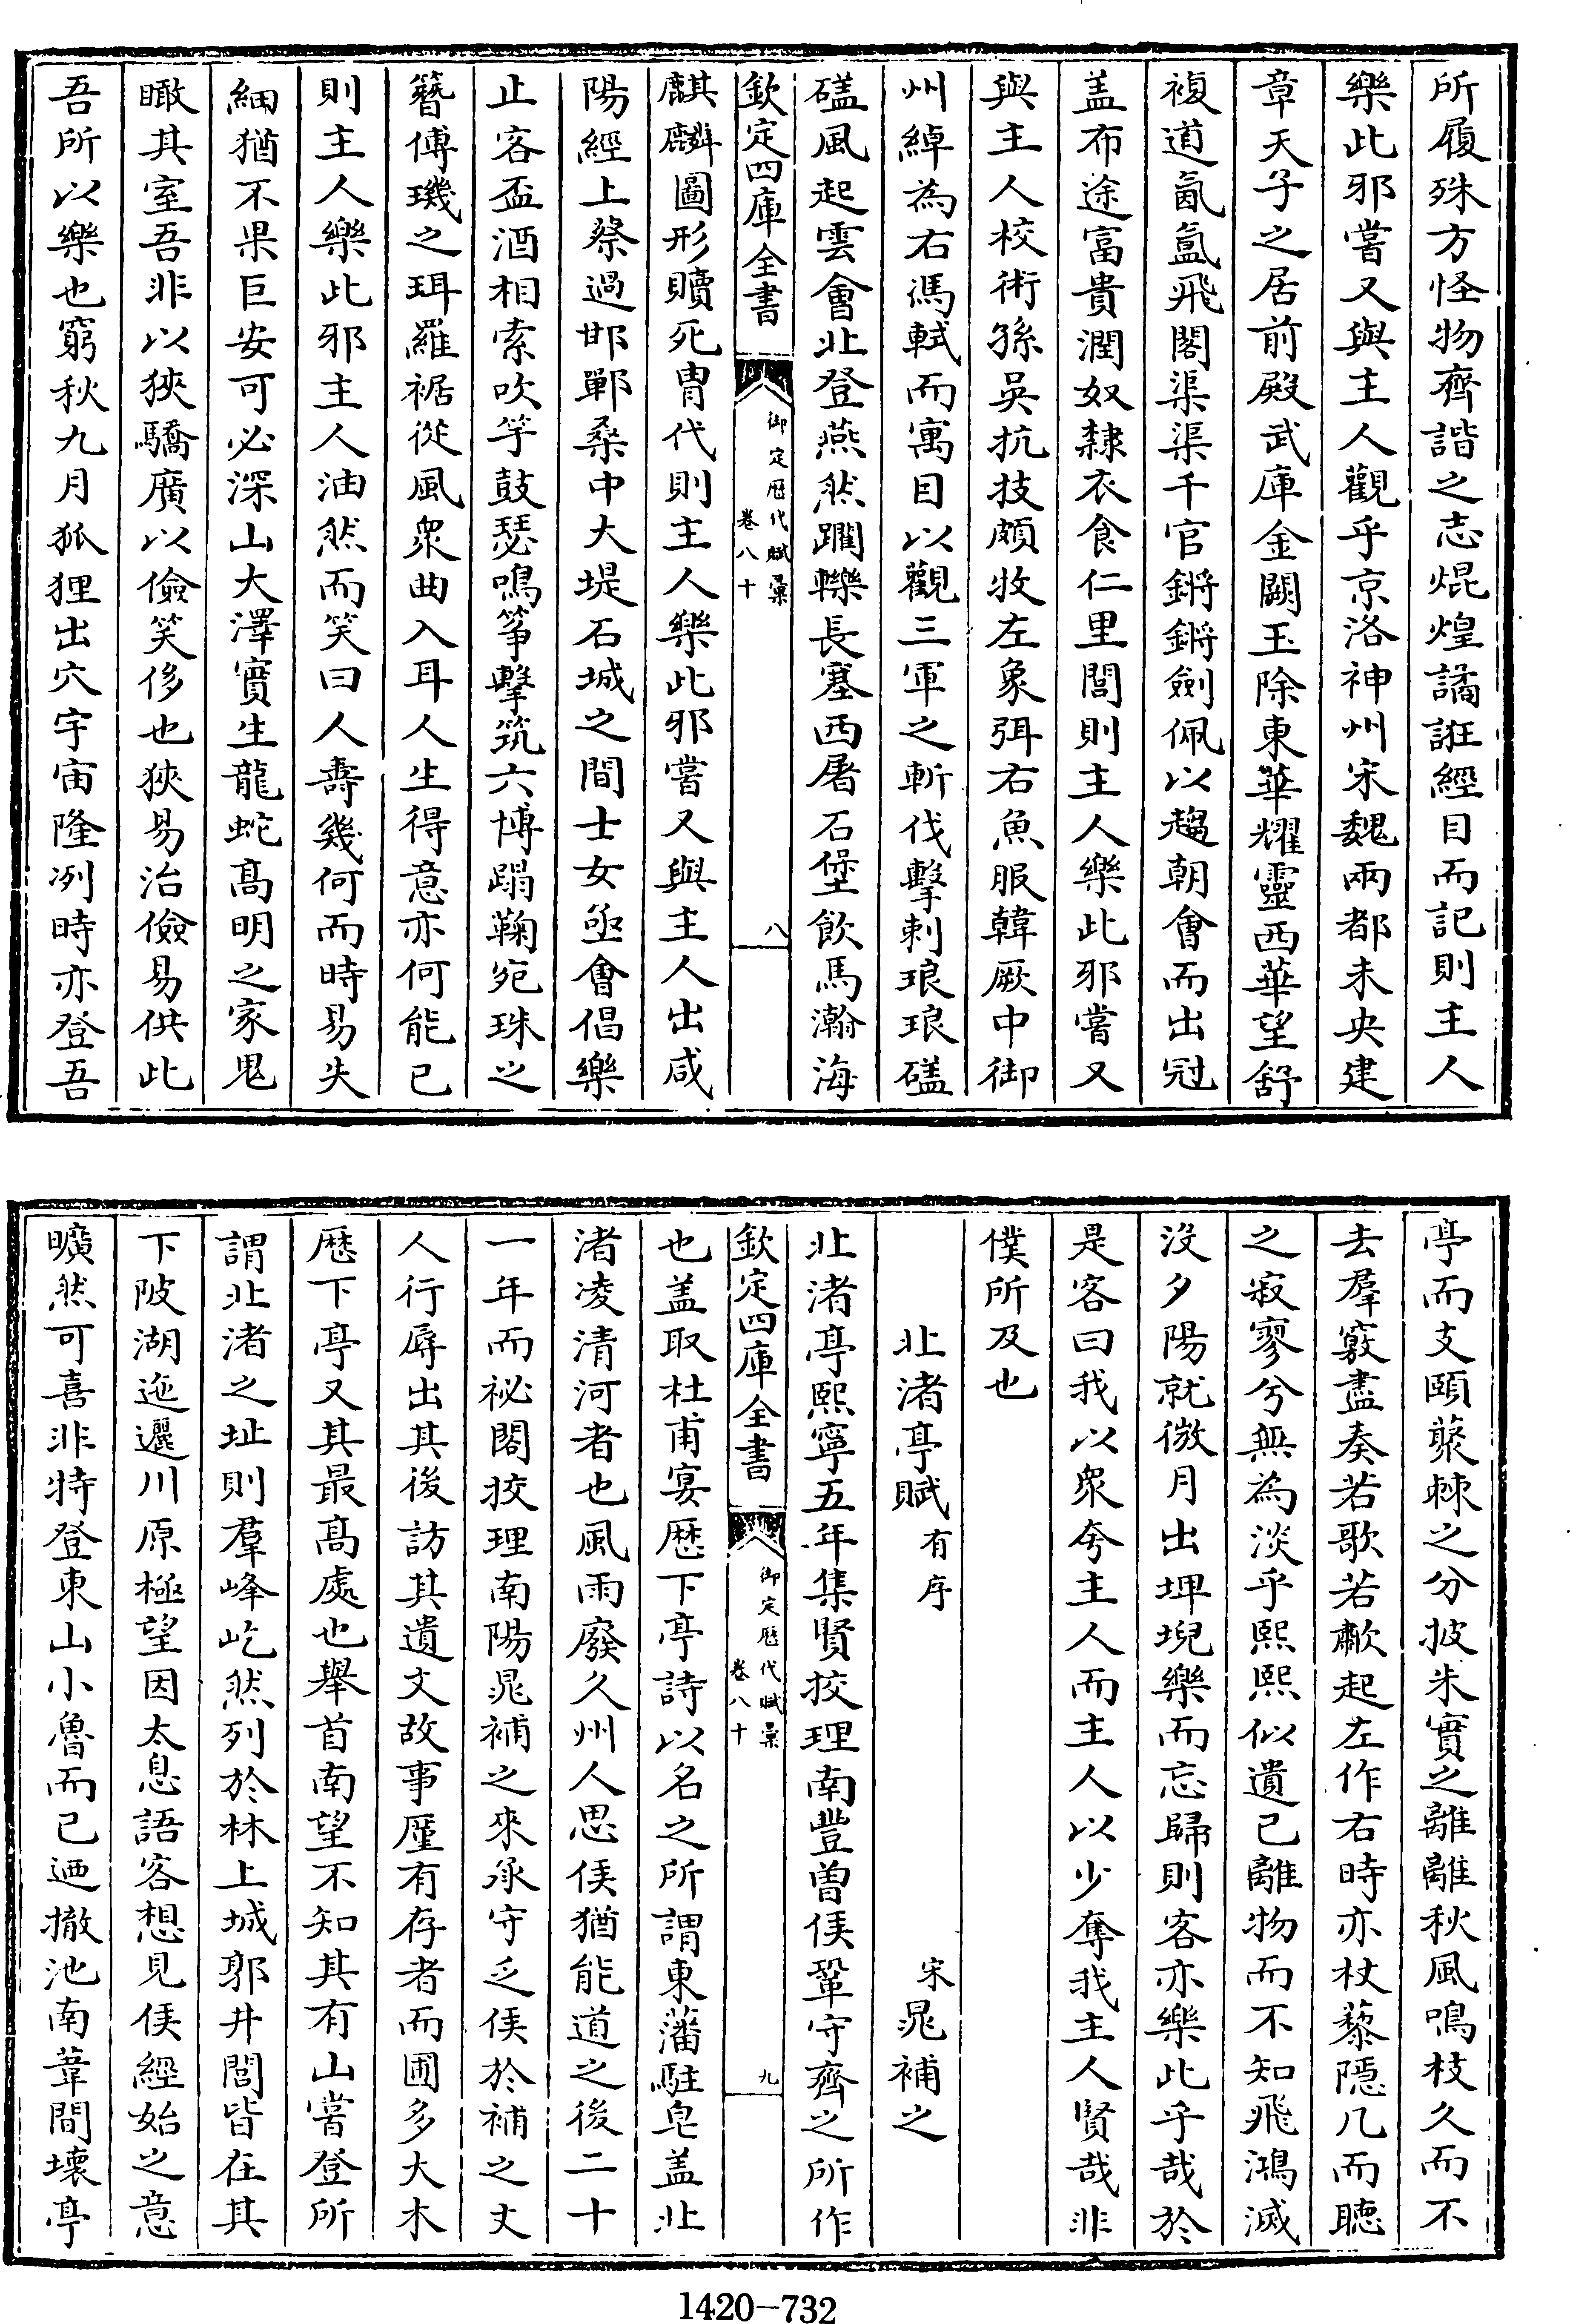 所履殊方怪物齊諧之志焜煌譎誑經目而記則主人
樂此邪嘗又與主人觀乎京洛神州宋魏兩都未央建
章天子之居前殿武庫金闕玉除東華耀靈西華望舒
複道氤氳飛閣渠渠千官鏘鏘劍佩以趨朝會而出冠
盖布途富貴潤奴隸衣食仁里閭則主人樂此邪嘗又
與主人校術孫吳抗技頗牧左象弭右魚服韓厥中御
州綽為右馮軾而寓目以觀三軍之斬伐擊刺琅琅磕
磕風起雲會北登燕然躙轢長塞西屠石堡飲馬瀚海
欽定四庫全書
御定歷代賦彙
卷八十
八
麒麟圖形贖死胄代則主人樂此邪嘗又與主人出咸
陽經上蔡過邯鄲桑中大堤石城之間士女亟會倡樂
止客盃酒相索吹竽鼓瑟鳴箏擊筑六博蹋鞠宛珠之
簪傅璣之珥羅裾從風衆曲入耳人生得意亦何能已
則主人樂此邪主人油然而笑曰人壽幾何而時易失
細猶不果巨安可必深山大澤實生龍蛇高明之家鬼
瞰其室吾非以狹驕廣以儉笑侈也狹易治儉易供此
吾所以樂也窮秋九月狐狸出穴宇宙隆冽時亦登吾
亭而支頤藂棘之分披朱實之離離秋風鳴枝久而不
去羣竅盡奏若歌若歗起左作右時亦杖藜隱几而聽
之寂寥兮無為淡乎熙熙似遺已離物而不知飛鴻滅
沒夕陽就微月出埤堄樂而忘歸則客亦樂此乎哉於
是客曰我以衆夸主人而主人以少奪我主人賢哉非
僕所及也
北渚亭賦有序
宋晁補之
北渚亭熙寧五年集賢挍理南豐曾侯鞏守齊之所作
欽定四庫全書
御定歷代賦彙
卷八十
九
也盖取杜甫宴歷下亭詩以名之所謂東藩駐皂盖北
渚凌清河者也風雨廢久州人思侯猶能道之後二十
一年而祕閣挍理南陽晁補之來承守乏侯於補之丈
人行辱出其後訪其遺文故事厪有存者而圃多大木
歷下亭又其最高處也舉首南望不知其有山嘗登所
謂北渚之址則羣峰屹然列於林上城郭井閭皆在其
下陂湖迤邐川原極望因太息語客想見侯經始之意
曠然可喜非特登東山小魯而已廼撤池南葦間壞亭
1420-732